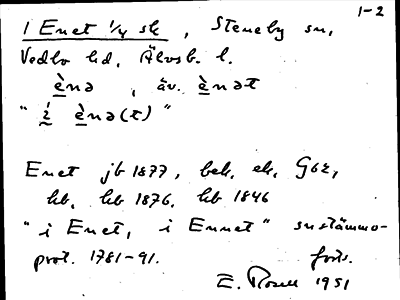 1-2
1 Enet 1/4 sk, Steneby sn,
Vedbo hd, Älvsb. l.
è̲nə, äv. è̲nət
"í̲ è̲nə(t)"
Enet jb 1877, bek, ek, G62,
hb, hb 1876, hb 1846
"i Enet, i Ennet" sustämmo-
prot. 1781-91. forts.
E. Rosell 1951